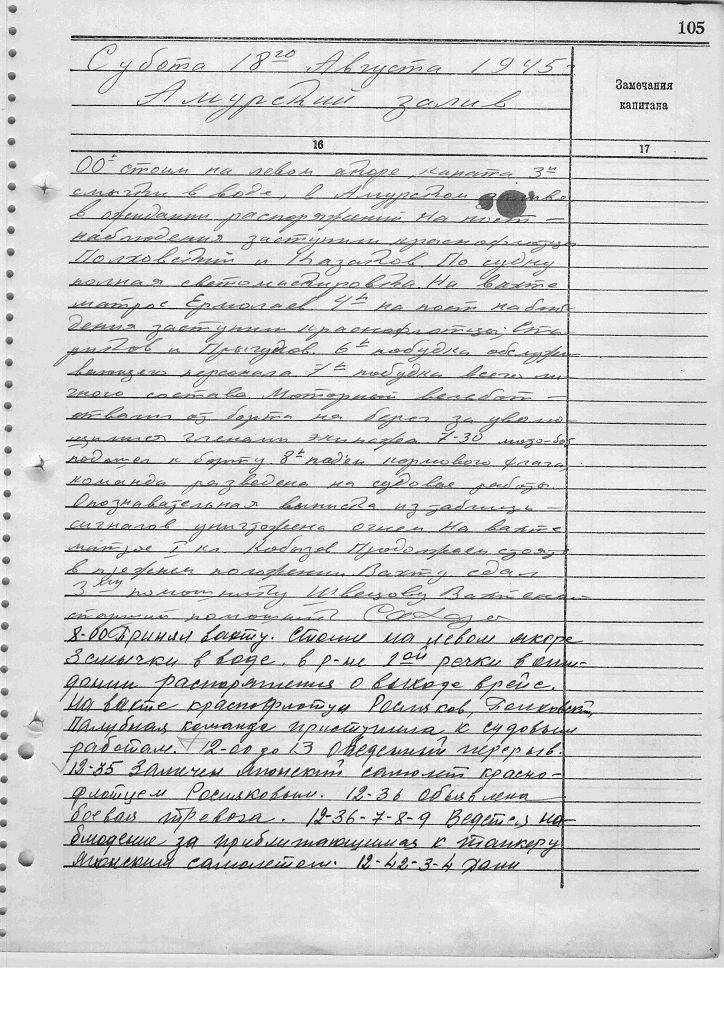 105
Субота 18го Августа 1945
Амурский залив
Замечания
капитана
16
17
00ч стоим на левом якоре, каната 3и
смычки в воде, в Амурском заливе
в ожидании распоряжений На пост –
наблюдения заступили краснофлотцы
Полховский и Казаков. По судну
полная светомаскировка. На вахте
матрос Ермолаев 4ч на пост наблю-
дения заступили краснофлотцы; Ста-
риков и Прыгунов. 6ч побудка обслужи-
вающего персонала 7ч побудка всего ли-
чного состава Моторный вельбот –
отвалил от борта на берег за уволь-
членами экипажа 7-30 мото-бот
подошел к борту 8ч под'ем кормового флага,
команда разведена на судовые работы
Опознавательная выписка из таблицы –
сигналов уничтожена огнем На вахте
матрос I кл. Кобызев Продолжаем стоять
в прежнем положении Вахту сдал
3ему помощнику Швецову Вахтенный
старший помощник
8-00 Принял вахту. Стоим на левом якоре
3 смычки в воде. в р-не 2ой речки в ожи-
дании распоряжения о выходе в рейс.
На вахте краснофлотцы Росляков, Полховский,
Палубная команда приступила к судовым
работам. 12-00 до 13 Обеденный перерыв.
12-35 Замечен Японский самолет красно-
флотцем Росляковым. 12-36 Объявлена
боевая тревога. 12-36-7-8-9 Ведется на-
блюдение за приближающимся к танкеру
Японским самолетом. 12-42-3-4 Дали